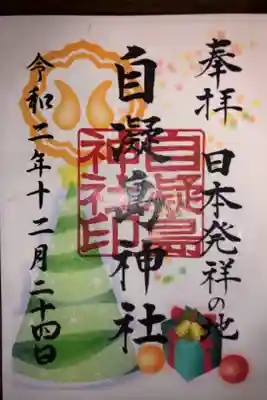 奉拝 日本発祥の地
自凝島神社
自凝島
神社印
令和二年十二月二十四日